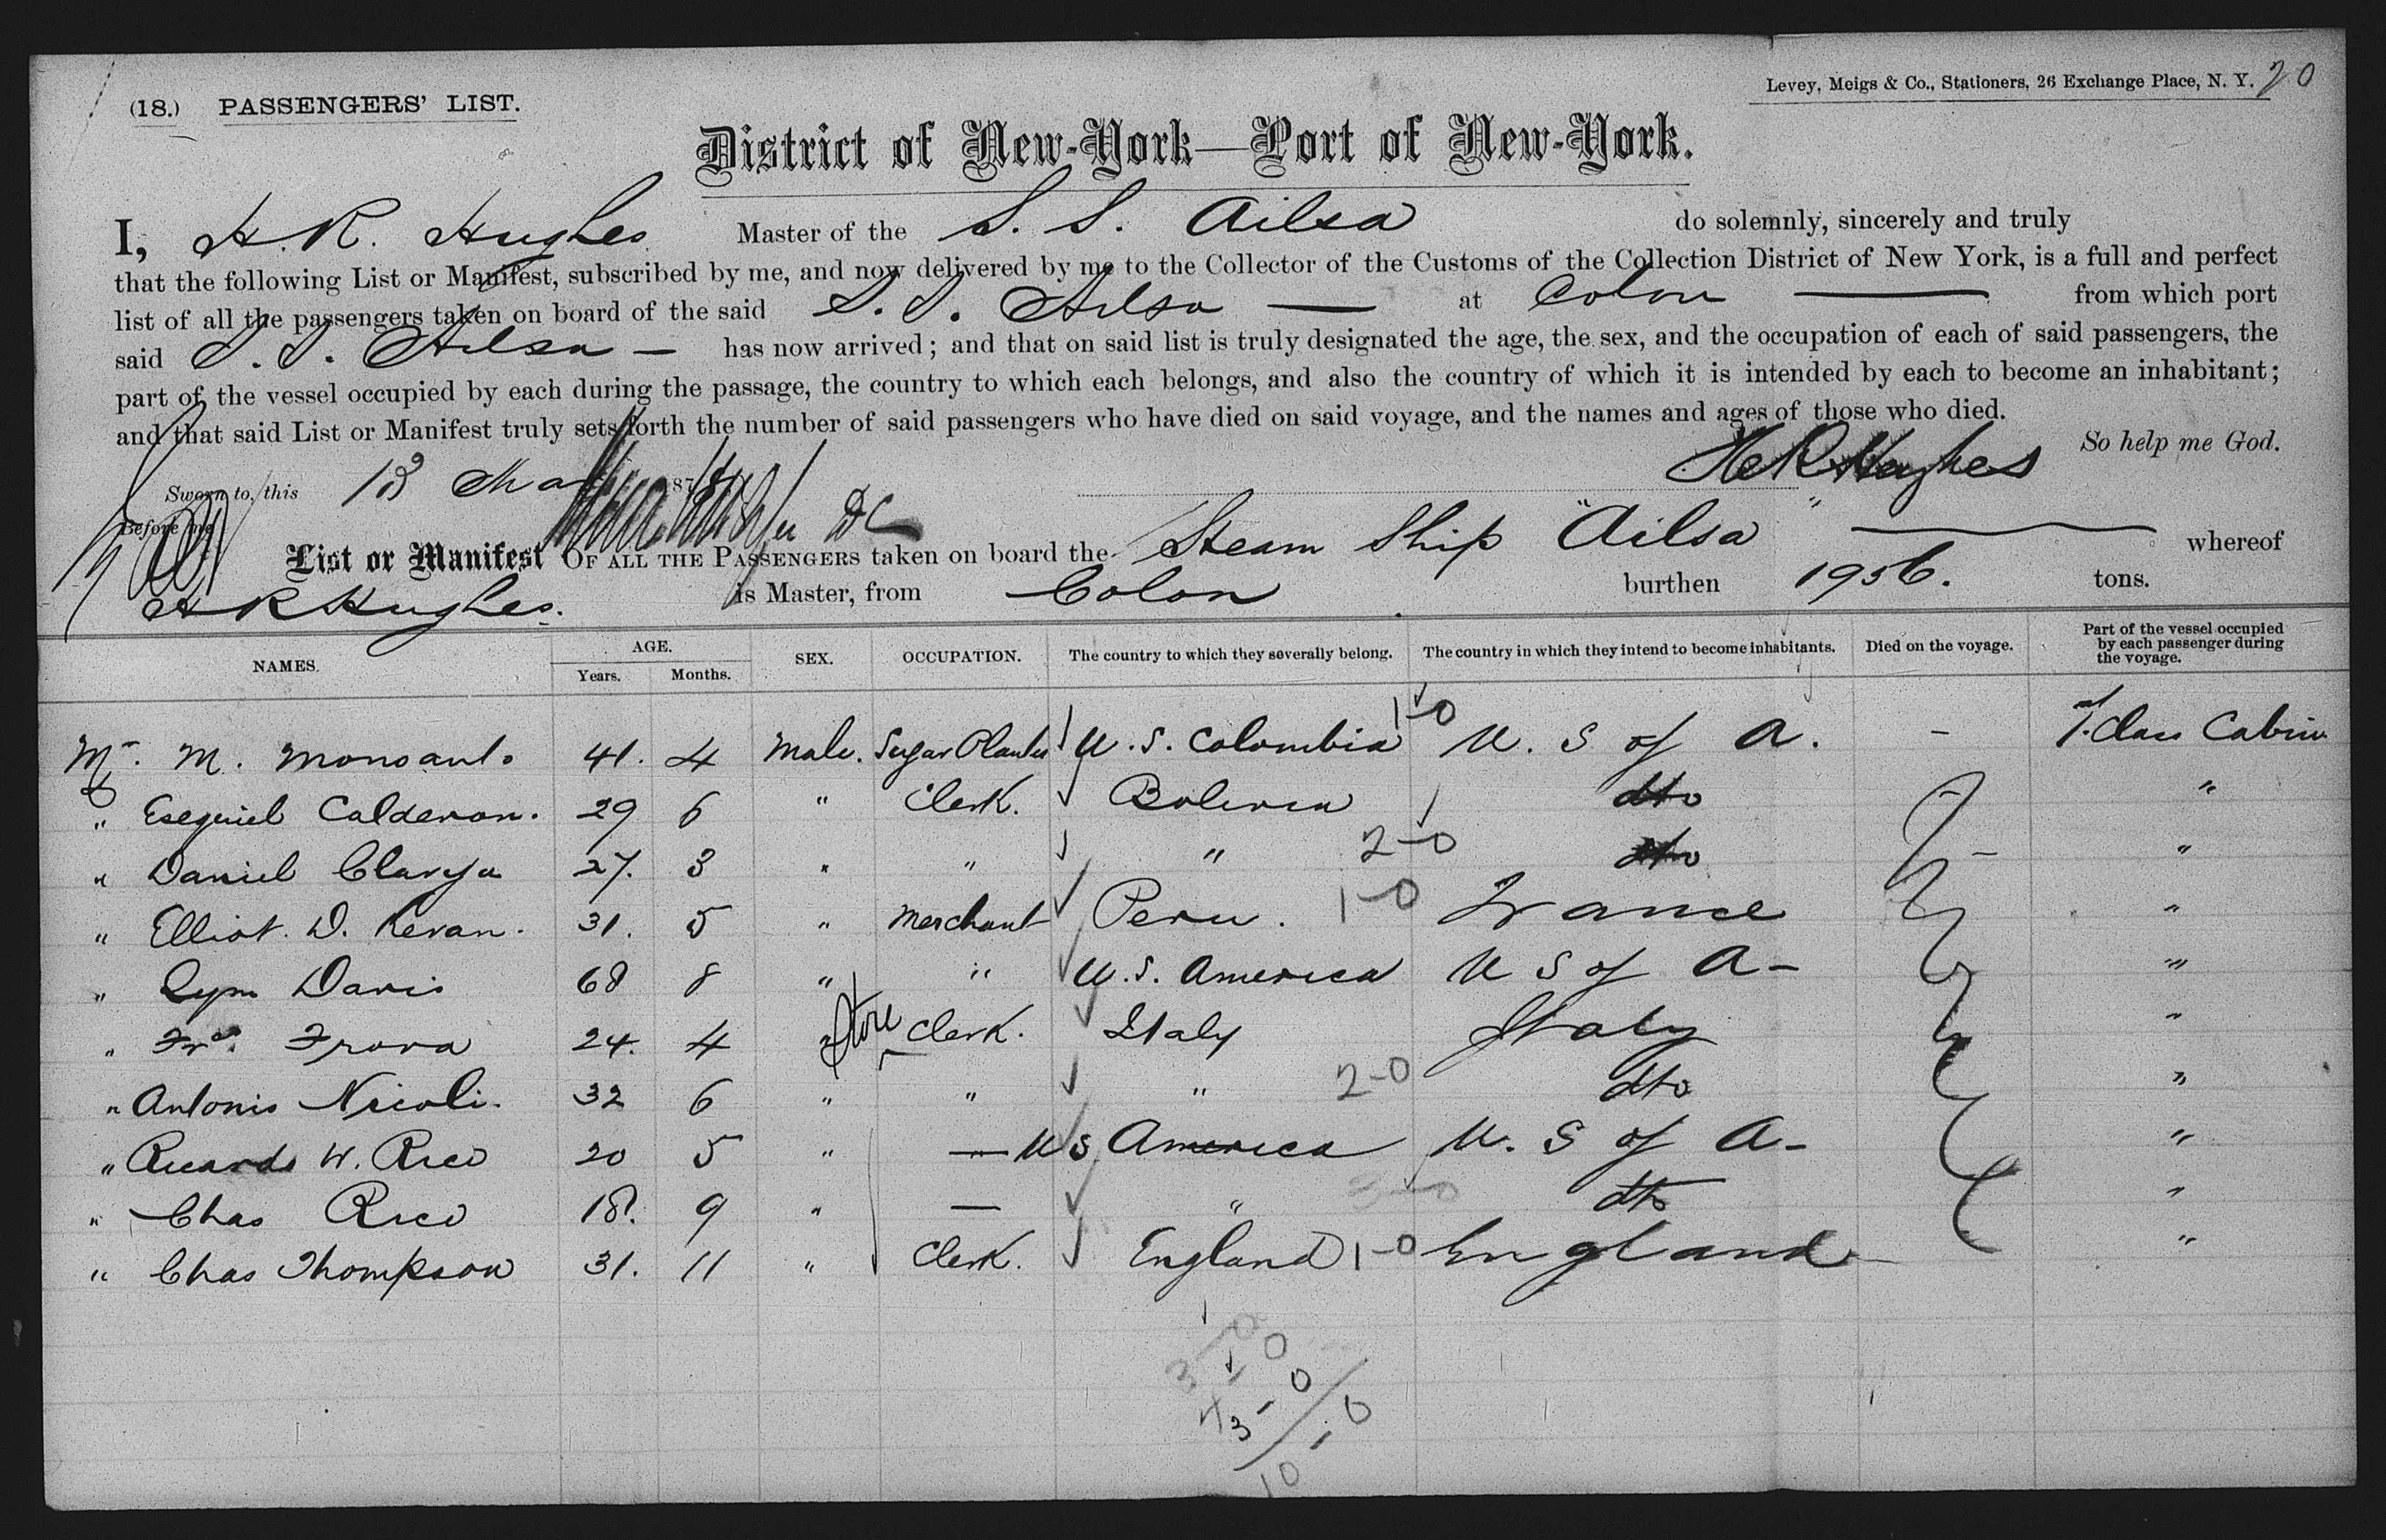 (18.) PASSENGERS' LIST.
Levey, Meigs & Co., Stationers, 26 Exchange Place, N. Y. 20
District of New-York—Port of New-York.
I, H. R. Hughes Master of the S. S. Ailsa do solemnly, sincerely and truly
that the following List or Manifest, subscribed by me, and now delivered by me to the Collector of the Customs of the Collection District of New York, is a full and perfect
list of all the passengers taken on board of the said S. S. Ailsa — at Colon — from which port
said S. S. Ailsa — has now arrived; and that on said list is truly designated the age, the sex, and the occupation of each of said passengers, the
part of the vessel occupied by each during the passage, the country to which each belongs, and also the country of which it is intended by each to become an inhabitant;
and that said List or Manifest truly sets forth the number of said passengers who have died on said voyage, and the names and ages of those who died.
So help me God.
HR Hughes
Sworn to, this 13 187
Before me
List or Manifest OF ALL THE PASSENGERS taken on board the Steam Ship "Ailsa" — whereof
H R Hughes. is Master, from Colon burthen 1956. tons.
NAMES. AGE. Years. Months. SEX. OCCUPATION. The country to which they severally belong. The country in which they intend to become inhabitants. Died on the voyage. Part of the vessel occupied by each passenger during the voyage.
Mr. M. Monsanto 41. 4 Male. Sugar Planter U. S. Colombia 1-0 U. S of A. - 1st Class Cabin
" Esequiel Calderon. 29 6 " Clerk. Bolivia dto - "
" Daniel 27. 3 " " " 2-0 dto - "
" Elliot. D. Kevan. 31. 5 " Merchant Peru. 1-0 France "
" Davis 68 8 " " U. S. America U S of A - "
" Frova 24. 4 " Store Clerk. Italy Italy "
" Antonio Nicoli. 32 6 " " " 2-0 dto "
" Ricardo W. Rico 20 5 " — U S America U. S of A - "
" Chas Rico 18. 9 " — " dto "
" Chas Thompson 31. 11 " Clerk. England 1-0 England "
10 - 0